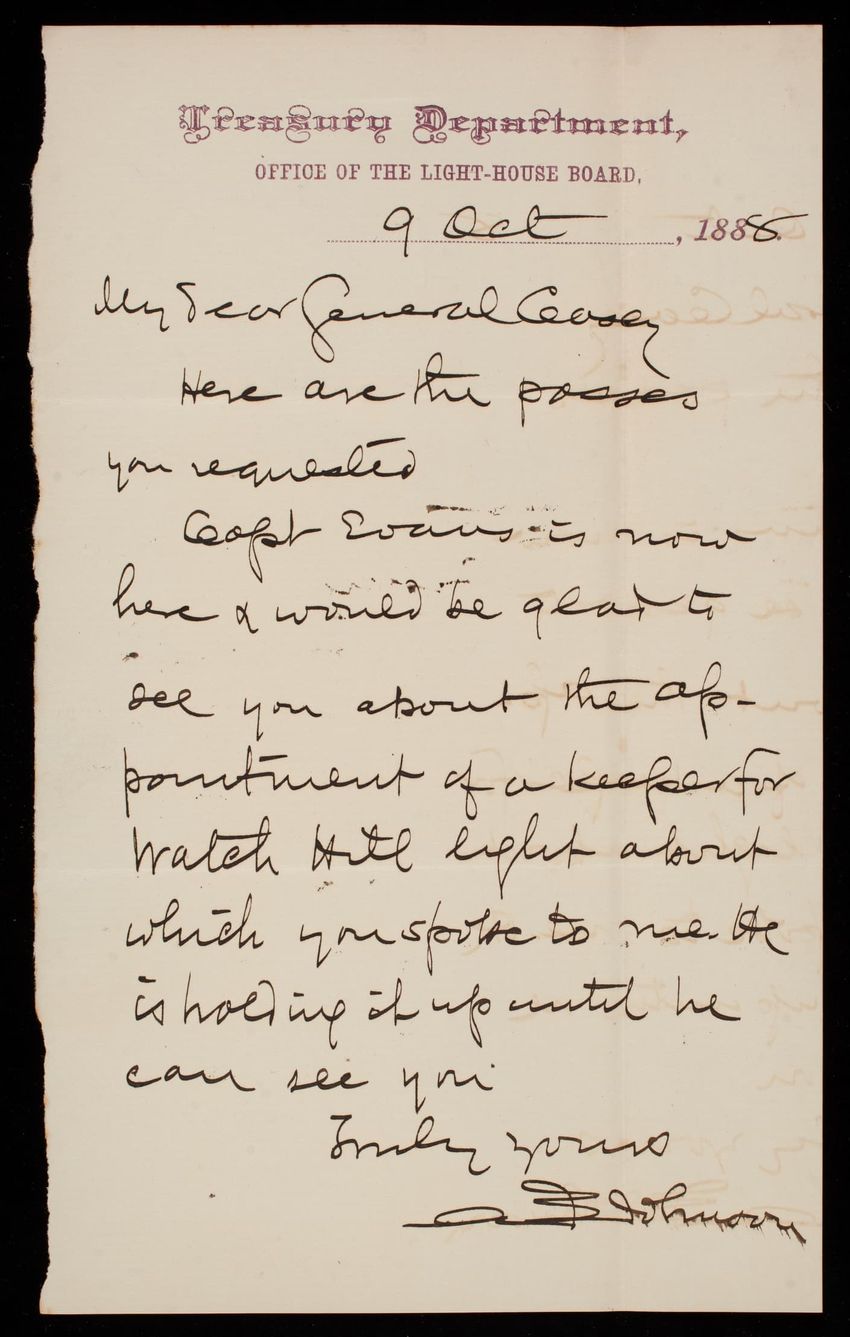 Treasury Department,
OFFICE OF THE LIGHT-HOUSE BOARD,
9 Oct, 1888.
My Dear General Casey
Here are the passes
you requested
Capt Evans is now
here & would be glad to
see you about the ap-
pointment of a keeper for
Watch Hill light about
which you spoke to me. He
is holding it up until he
can see you
Truly yours
A B Johnson